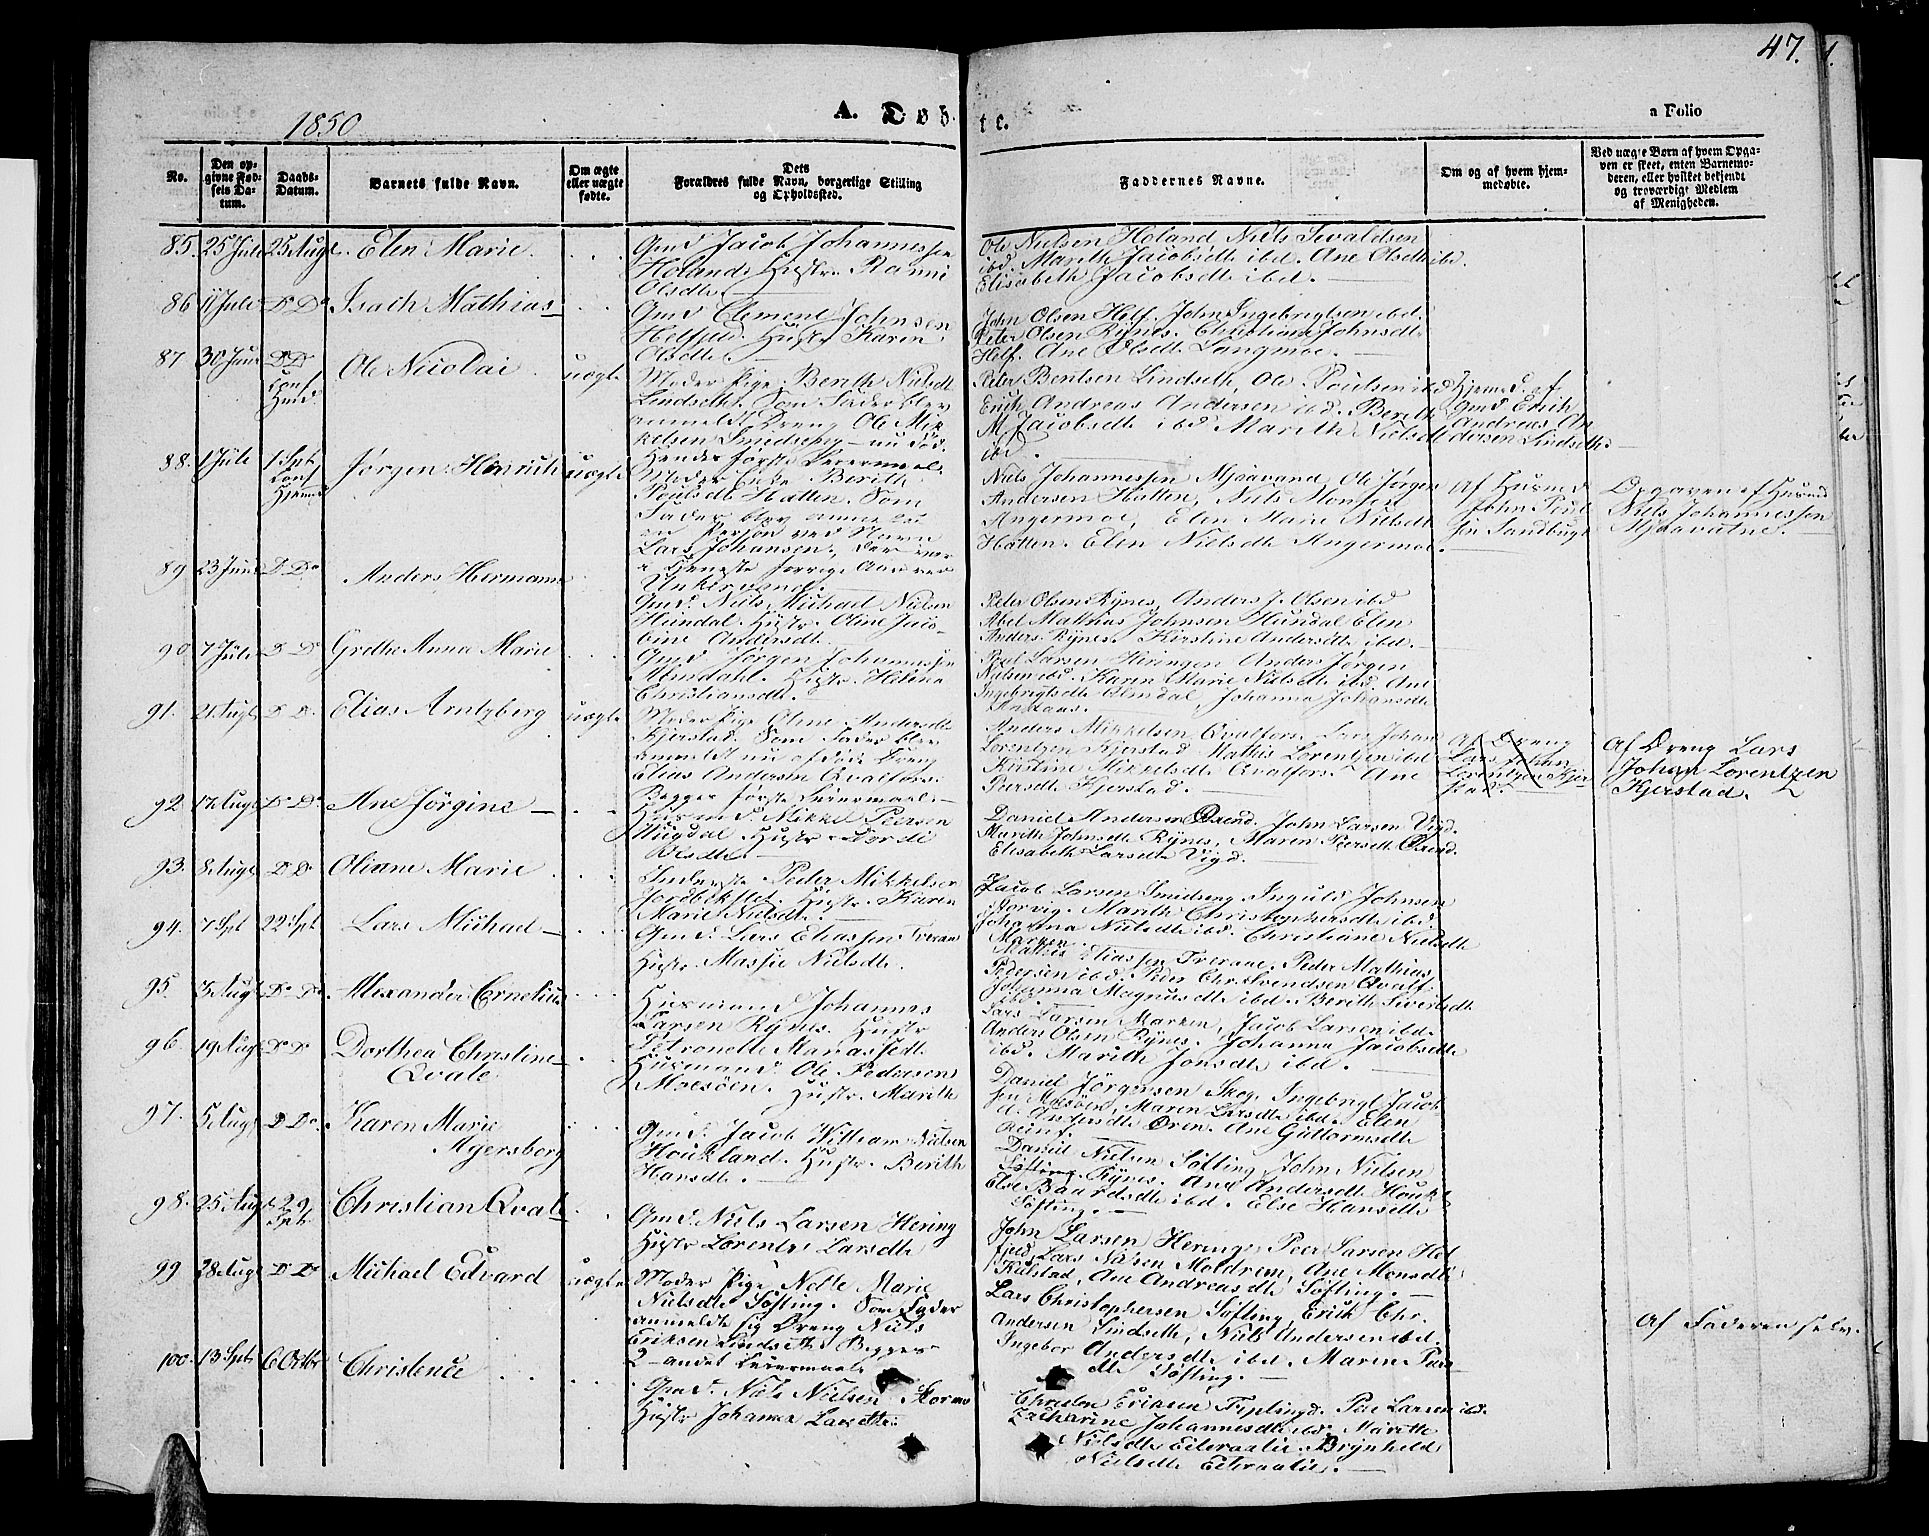 47.
1850
A. Døb
te.
a Folio
No.
Den op-
givne Fød-
sels Da-
tum.
Daabs-
Datum.
Barnets fulde Navn.
Om ægte
eller uægte
fødte.
Dets
Forældres fulde Navn, borgerlige Stilling
og Opholdssted.
Faddernes Navne.
Om og af hvem hjem-
medøbte.
Ved uægte Børn af hvem Opga-
ven er skeet, enten Barnemo-
deren, eller hvilket bekjendt
og troværdigt Medlem
af Menigheden.
85. 25 Juli 25 Augt. Elen Marie.
Gmd Jacob Johannessen
Holand. Hustr. Ranni
Olsdtr.
Ole Nielsen Holand Niels Sivaldsen
ibd. Marith Jacobsdtr ibd. Ane Olsdtr ibd.
Elisabeth Jacobsdtr ibd.
86 11 Juli Do Do Isach Mathias
Gmd Clement Johnsen
Helfjeld. Hustr Karen
Olsdtr.
John Olsen Helf. John Ingebrigtsen ibd.
Peter Olsen Rynes. Christina Johnsdtr
Helf. Ane Olsdtr Langmoe.
87 30 Juni Do Do
Conf
Hmd.
Ole Nicolai uægte
Moder Pige Berith Nielsdtr
Lindseth. Som Fader blev
anmeldt Dreng Ole Mik
kelsen Smedseng - nu død.
Hendes første Leiermaal.
Peter Bentsen Lindseth, Ole Poulsen ibd
Erich Andreas Andersen ibd. Berith
M Jacobsdtr ibd Marith Nielsdtr
ibd.
Hjemd. af
Gmd Erich
Andreas An
dersen Lindseth.
88. 1 Juli 1 Spt.
Conf
Hjemme
Jørgen Henrich uægte
Moder Enke Berith
Poulsdtr Hatten. Som
Fader blev anmeldt
en Person ved Navn
Lars Johansen, der var
i Tjeneste forrige Aar ved
Unkervand.
Niels Johannessen Mjaavand, Ole Jørgen
Andersen Hatten, Niels Monsen
Angermoe, Elen Marie Nielsdtr
Hatten. Elen Nielsdtr Angermoe.
Af Husmd
John Poul
sen Sandbugt
Opgaven af Husmd
Niels Johannessen
Mjaavatne.
89. 23 Juni Do Do Anders Hermann
Gmd. Niels Michael Nielsen
Hundal. Hustr. Oline Jaco-
bine Andersdtr.
Peter Olsen Rynes, Anders J. Olsen ibd
Abel Mathias Johnsen Hundal Elen
Anders. Rynes. Kirstine Andersdtr ibd.
90. 7 Juli Do Do Grethe Anna Marie
Gmd Jørgen Johannessen
Almdahl. Hustr. Helena
Christiansdtr.
Poul Larsen Heringen Anders Jørgen
Nielsen ibd. Karen Marie Nielsdtr ibd. Ane
Ingebrigtsdtr Almdal, Johanna Johansdtr
91. 21 Augt Do Do. Elias Arntzberg uægte
Moder Pige Oline Andersdtr
Kjerstad. Som Fader blev
anmeldt nu afdøde Dreng
Elias Andersen Qvalfors.
Begges første Leiermaal.
Anders Mikkelsen Qvalfors. Lars Johan
Lorentzen Kjerstad Mathis Lorentzen ibd
Kirstine Mikkelsdtr Qvalfors. Ane
Peersdtr Kjerstad.
Af Dreng
Lars Johan
Lorentzen Kjer-
stad.
Af Dreng Lars
Johan Lorentzen
Kjerstad.
92. 17 Augt Do Do Ane Jørgine
Husmd. Mikkel Peersen
Mugdal Hustr. Dordi
Olsdtr.
Daniel Andersen Ørend. John Larsen Vigd.
Marith Johnsdtr Rynes, Maren Peersdtr Ørend.
Elisabeth Larsdtr Vigd.
93. 8 Augt Do Do Olianne Marie
Inderste Peder Mikkelsen
Jordbekslet. Hustr. Karen
Marie Nielsdtr.
Jacob Larsen Smedseng. Ingvald Johnsen
Storvig. Marith Christophersdtr ibd
Johanna Nielsdtr ibd. Christiane Nielsdtr
Marken.
94. 7 Spt 22 Spt. Lars Michael
Gmd. Lars Eliassen Treraae
Hustr. Massie Nielsdtr.
Mathis Eliassen Treraae. Peder Mathias
Pedersen ibd. Peder Chr. Svendsen Qvalf.
Johanna Magnusdtr ibd. Berith Sivertsdtr
ibd.
95. 3 Augt Do Do Alexander Cornelius
Husmand Johannes
Larsen Rynes. Hustr
Petronelle Manassedtr.
Lars Larsen Marken, Jacob Larsen ibd.
Anders Olsen Rynes. Johanna Jacobsdtr
ibd. Marith Jonsdtr ibd.
96. 19 Augt Do Do Dorthea Christine
Qvale
Husmand. Ole Pedersen
Moesøen. Hustr. Marith
Daniel Jørgensen Skog. Ingebrigt Jacob
sen Mosøen. Maren Larsdtr ibd. Elen
Andersdtr Øren. Ane Guttormsdtr
97. 5 Augt Do Do. Karen Marie
Mgersborg
Gmd. Jacob William Nielsen
Houkland. Hustr. Berith
Hansdtr.
Daniel Nielsen Søfting, John Nielsen
Søfting. Rynes. Ane Andersdtr Houkl.
Else Baardsdtr ibd. Else Hansdtr
Søfting.
98. 25 Augt 29
Spt. Christian Qvale
Gmd. Niels Larsen Hering
Hustr Lorentze Larsdtr
John Larsen Hering, Peer Larsen Hel
fjeld, Lars Nilsen Moldrem, Ane Monsdtr
Kulstad, Ane Andreasdtr Søfting.
99 28 Augt Do Do Michael Edvard uægte
Moder Pige Nelle Marie
Nielsdtr Søfting. Som Fader
anmeldte sig Dreng Niels
Eriksen Lindseth Begges
2-andet Leiermaal
Lars Christophersen Søfting, Erich Chr.
Andersen Lindseth, Niels Andersen ibd.
Ingebor Andersdtr ibd. Maren Peers
dtr Søfting.
Af Faderen selv.
100. 13 Spt. 6 Octbr Christence
Gmd. Niels Nielsen Stormo
Hustr Johanna Larsdtr.
Christen Eriksen Fiplingd. Peer Larsen ibd.
Zacharine Johannesdtr ibd. Marette
Nielsdtr Eiteraalie. Brynhild
Nielsdtr Eiteraalie.